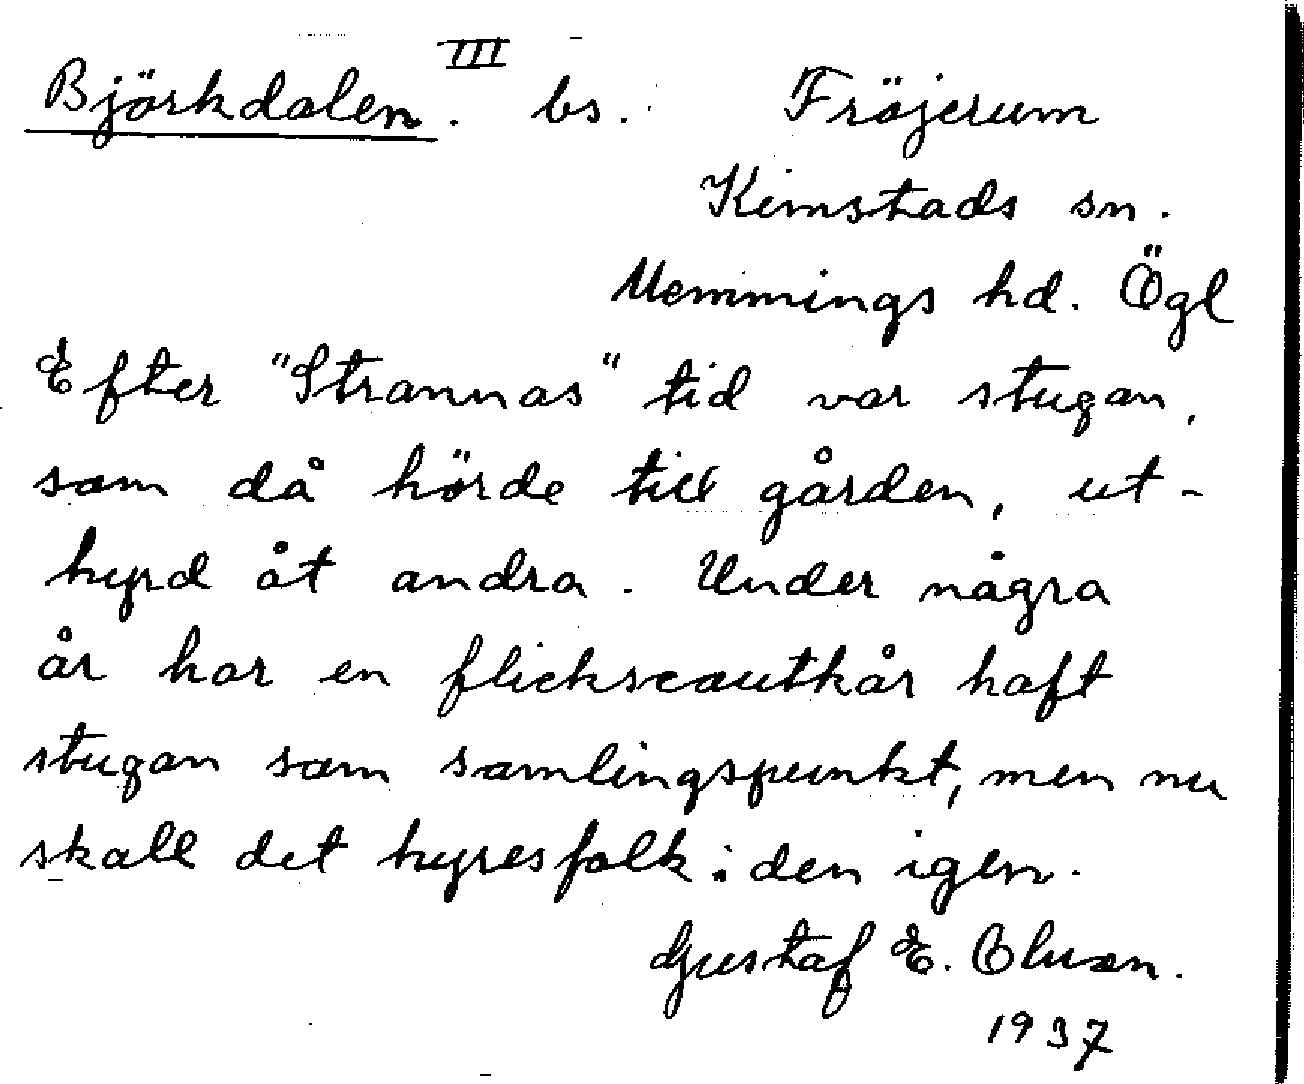 III
Björkdalen. bs. Fröjerum
Kimstads sn.
Memmings hd. Ögl
Efter "Strannas" tid var stugan,
som då hörde till gården, ut-
hyrd åt andra. Under några
år har en flickscoutkår haft
stugan som samlingspunkt, men nu
skall det hyresfolk i den igen.
Gustaf E.
1937